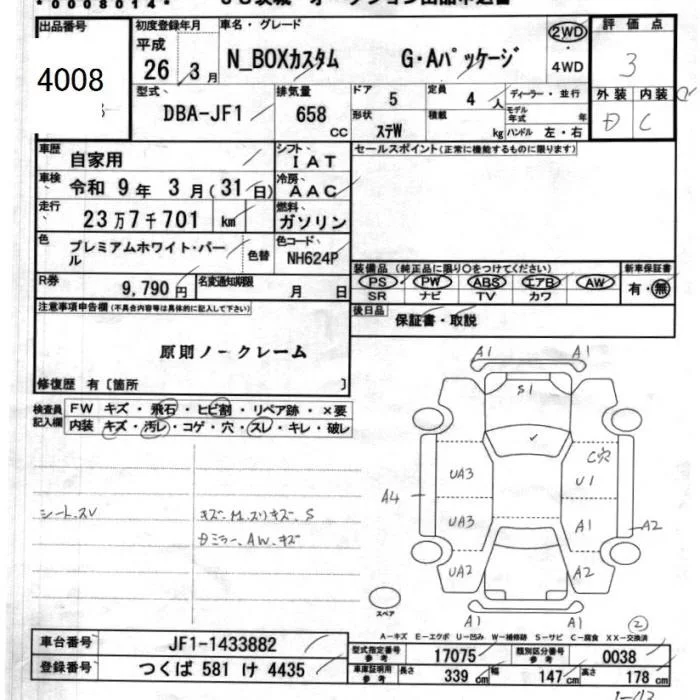 *0008014*
出品番号
4008
初度登録年月
平成
26 3月
車名・グレード
N_BOXカスタム G・Aパッケージ
2WD
・
4WD
評価点
3
外装 内装
D C
型式
DBA-JF1
排気量
658
CC
ドア
5
定員
4 人
形状
ステW
積載
kg
ディーラー・並行
モデル年式 年
ハンドル 左・右
車歴
自家用
シフト
IAT
セールスポイント(正常に機能するものに限ります)
車検
令和 9年 3月(31日)
冷房
AAC
走行
23万7千701 km
燃料
ガソリン
色
プレミアムホワイト・パール
色替
色コード
NH624P
R券
9,790円
名変通知期限
月 日
装備品(純正品に限り○をつけてください)
PS PW ABS エアB AW
SR ナビ TV カワ
新車保証書
有・無
後日品
保証書・取説
注意事項申告欄(不具合内容等は具体的に記入して下さい)
原則ノークレーム
修復歴 有〔箇所 〕
検査員記入欄
FW キズ・飛石・ヒビ割・リペア跡・×要
内装 キズ・汚レ・コゲ・穴・スレ・キレ・破レ
シートスレ
キズ、M、スリキズ、S
Dミラー、AW、キズ
A1 A1
S1
C穴
UA3 U1
A4
UA3 A1 A2
UA2 A2
スペア
A1 A1
2
A-キズ E-エクボ U-凹み W-補修跡 S-サビ C-腐食 XX-交換済
車台番号
JF1-1433882
型式指定番号
参考
17075
類別区分番号
参考
0038
登録番号
つくば 581 け 4435
車庫証明用
参考
長さ 339 cm 幅 147 cm 高さ 178 cm